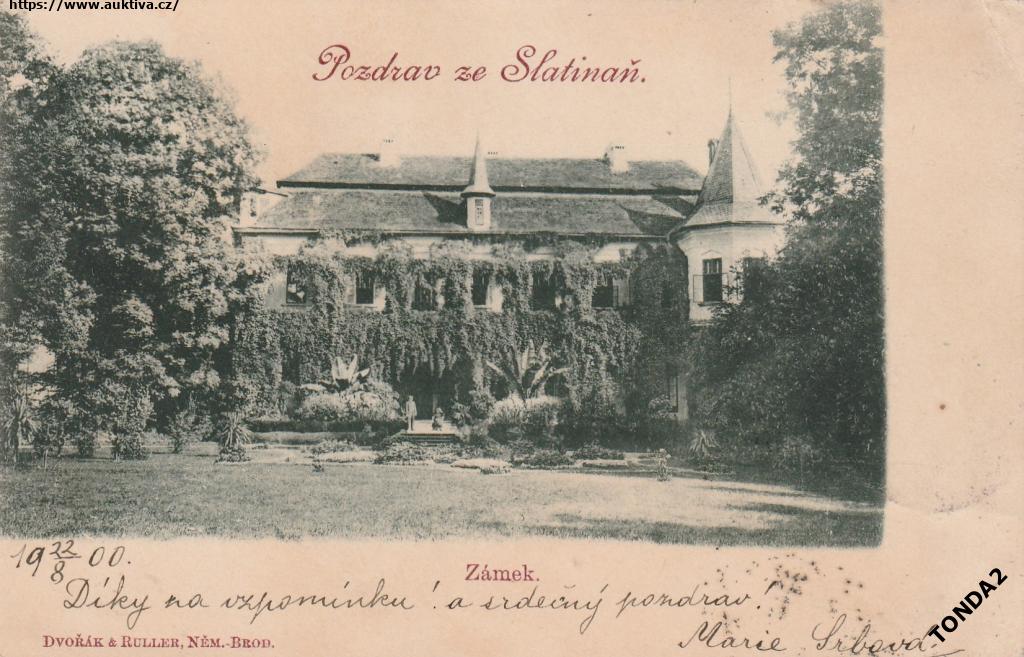 https://www.auktiva.cz/
Pozdrav ze Slatinaň.
19 22/8 00.
Zámek.
Díky na vzpomínku! a srdečný pozdrav!
Dvořák & Ruller, Něm.-Brod.
Marie Srbová.
TONDA2